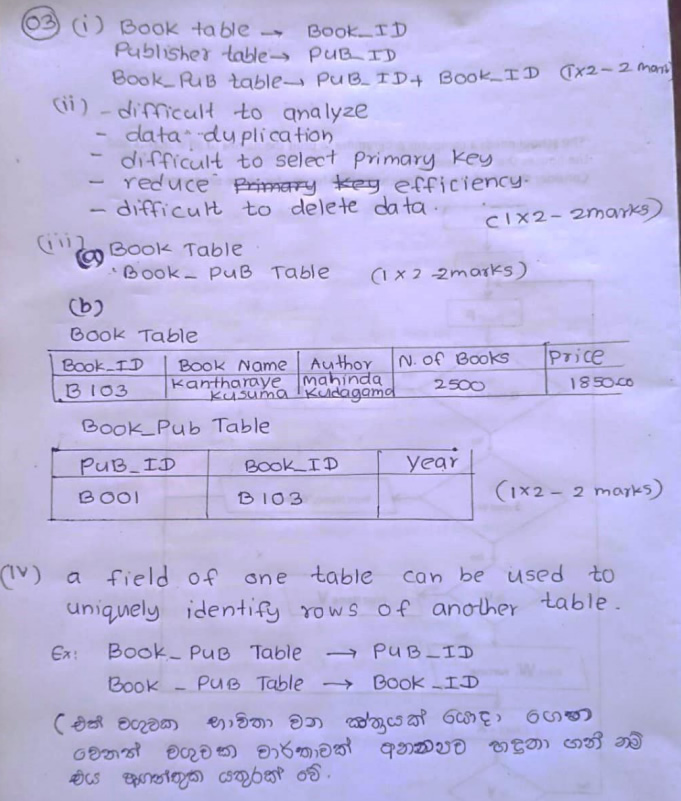 03 (i) Book table → Book_ID
Publisher table → PUB_ID
Book_PUB table → PUB_ID + Book_ID (1x2 - 2 mark
(ii) - difficult to analyze
- data duplication
- difficult to select primary key
- reduce primary key efficiency.
- difficult to delete data. (1x2 - 2marks)
(iii) (a) Book Table
Book_ PUB Table (1x2 - 2marks)
(b)
Book Table
Book_ID Book Name Author N. of Books Price
B103 Kantharaye Kusuma Mahinda Kudagama 2500 1850.00
Book_Pub Table
PUB_ID Book_ID Year
B001 B103
(1x2 - 2 marks)
(iv) a field of one table can be used to
uniquely identify rows of another table.
Ex: Book_ PUB Table → PUB_ID
Book _ PUB Table → Book_ID
( එක් වගුවක භාවිතා වන ක්ෂේත්‍රයක් යොදා ගෙන
වෙනත් වගුවක වාර්තාවක් අනන්‍යව හඳුනා ගත් නම්
එය ආගන්තුක යතුරක් වේ.